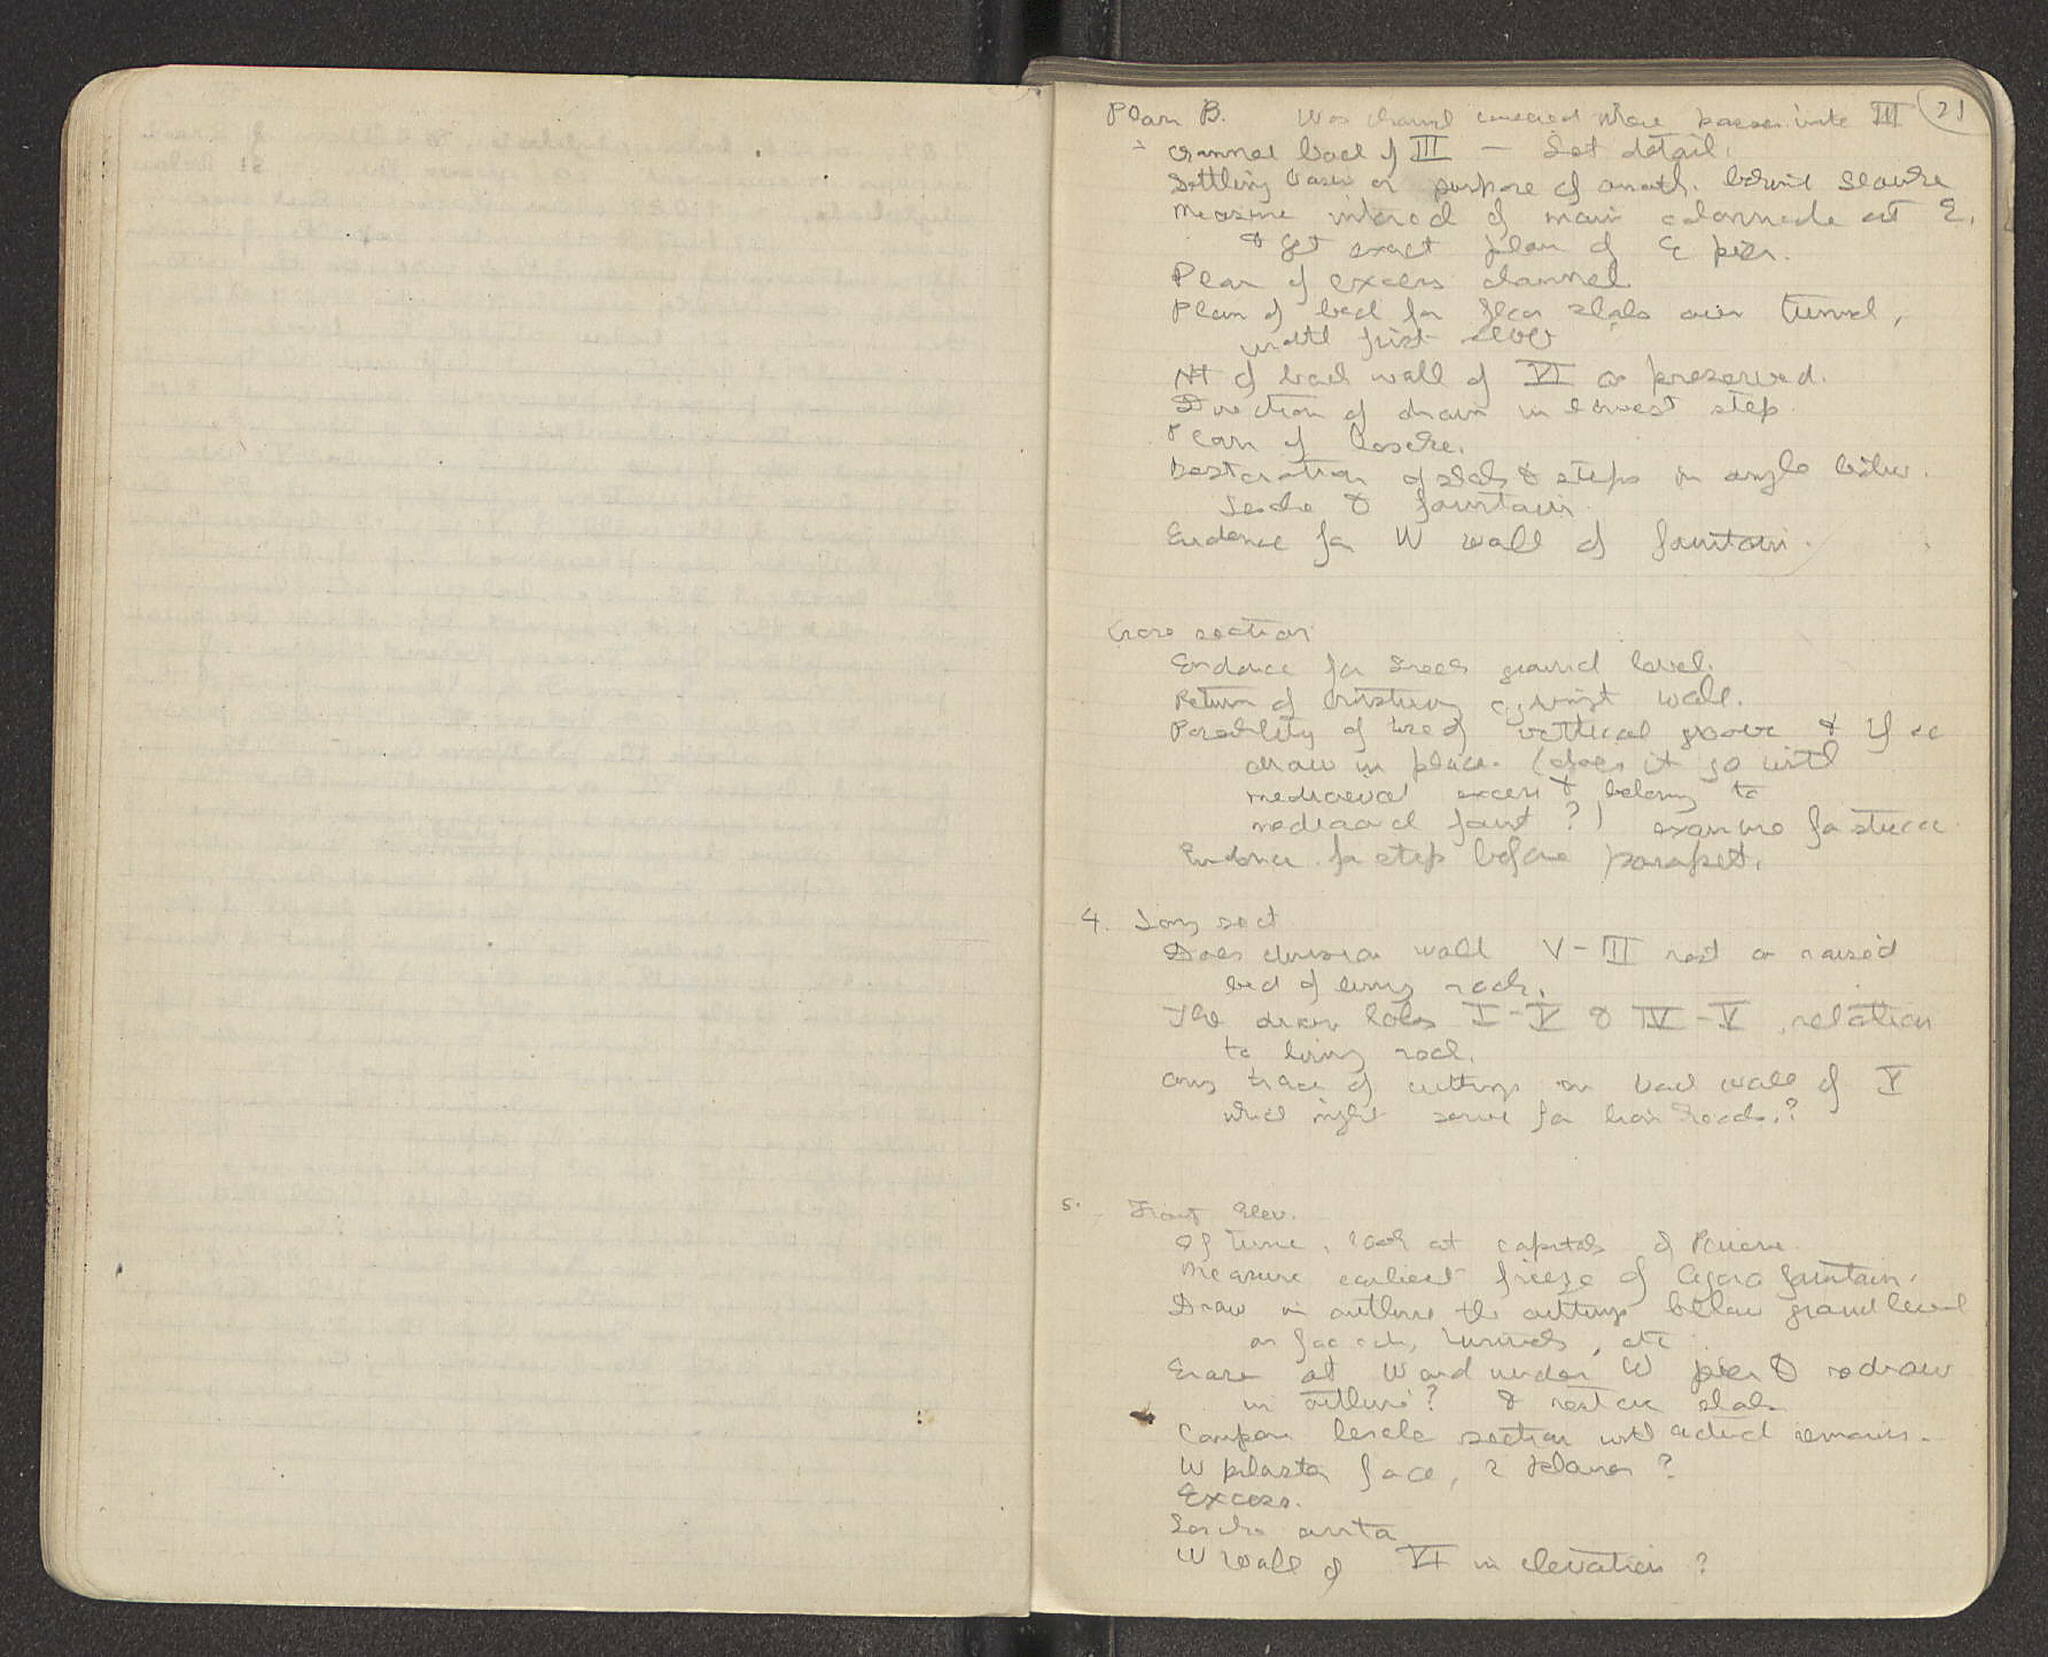 21
Plan B. Was channel covered where passes into III
channel back of III — Get detail.
Settling basin or purpose of
Measure interval of main colonnade at E.
& get exact plan of E pier.
Plan of excess channel
Plan of bed for floor slabs over tunnel,
until first
Ht of back wall of VI as preserved.
Direction of drain in lowest step
Plan of Lesche.
Restoration of slabs & steps in angle betw.
Lesche & fountain
Evidence for W wall of fountain.
Cross section
Evidence for Greek ground level.
Return of against wall.
Possibility of use of vertical groove & if so
draw in place. (does it go with
mediaeval excess & belong to
mediaeval fount?) examine for stucco
Evidence for step before parapet.
4. Long sect
Does division wall V-III rest on raised
bed of living rock.
The drain holes I-V & IV-V, relation
to living rock.
any trace of cuttings on back wall of V
which might serve for lion heads.?
5. Front Elev.
If time, look at capitals of Peirene
Measure earliest frieze of Agora fountain.
Draw in outline the cuttings below ground level
on facade, tunnels, etc
Erase at W and under W pier & redraw
in outline? & restore slab
Compare Lesche section with actual remains.
W pilaster face, 2 planes?
Excess.
Lesche anta
W wall of VI in elevation?